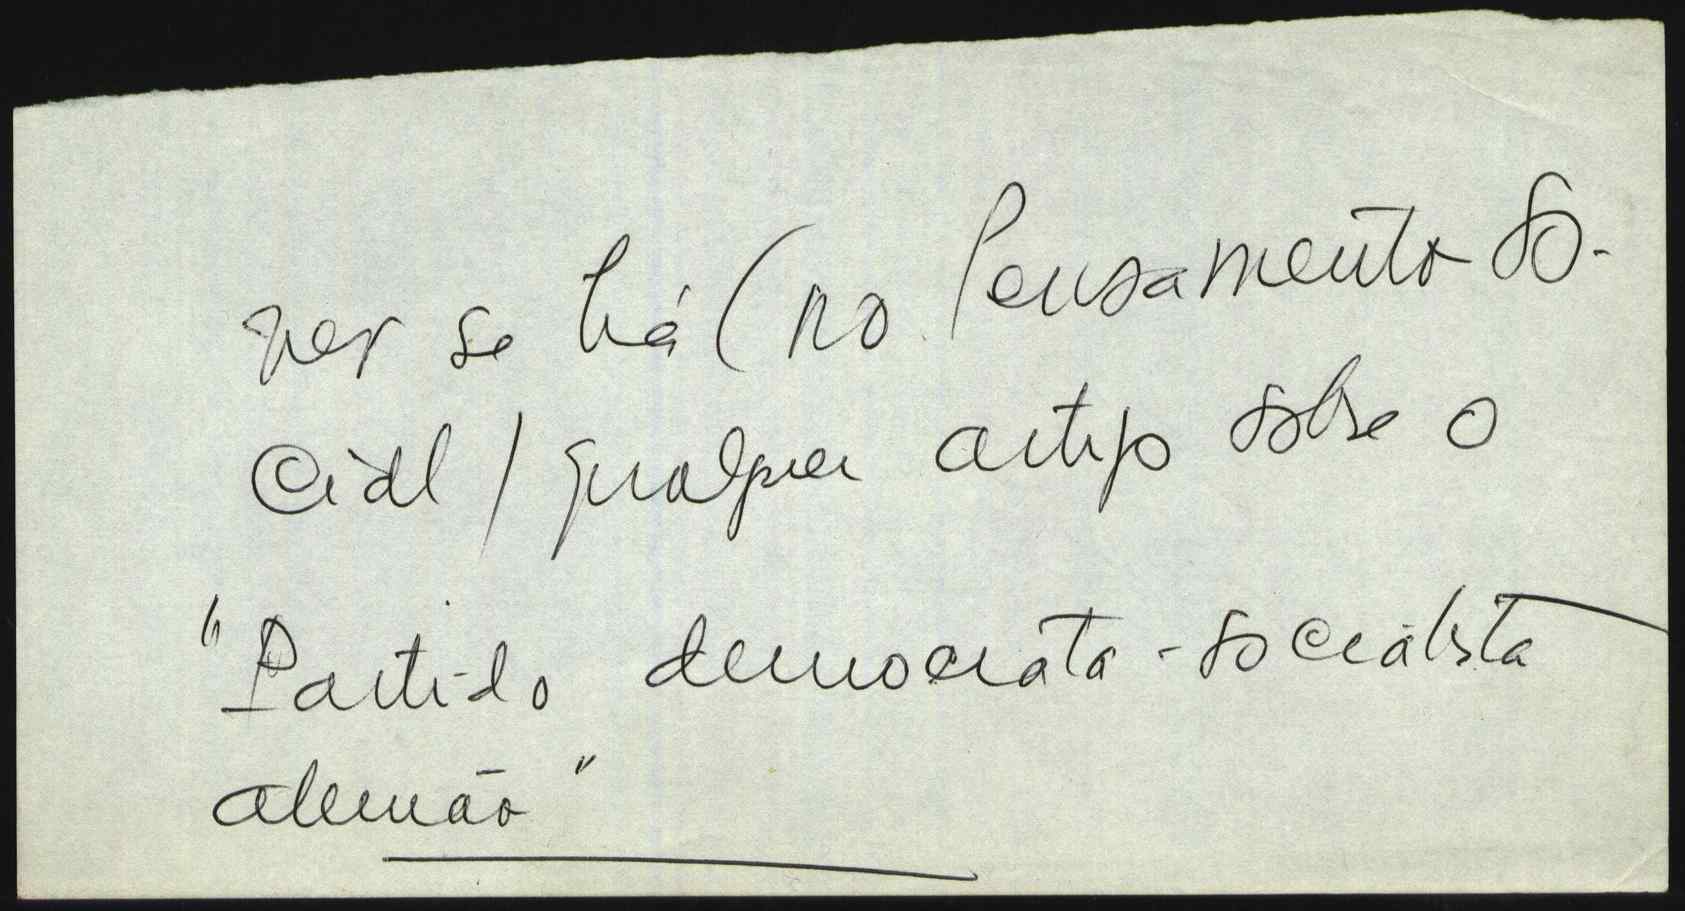 ver se há (no Pensamento So-
cial) qualquer artigo sobre o
"Partido democrata-socialista
alemão"